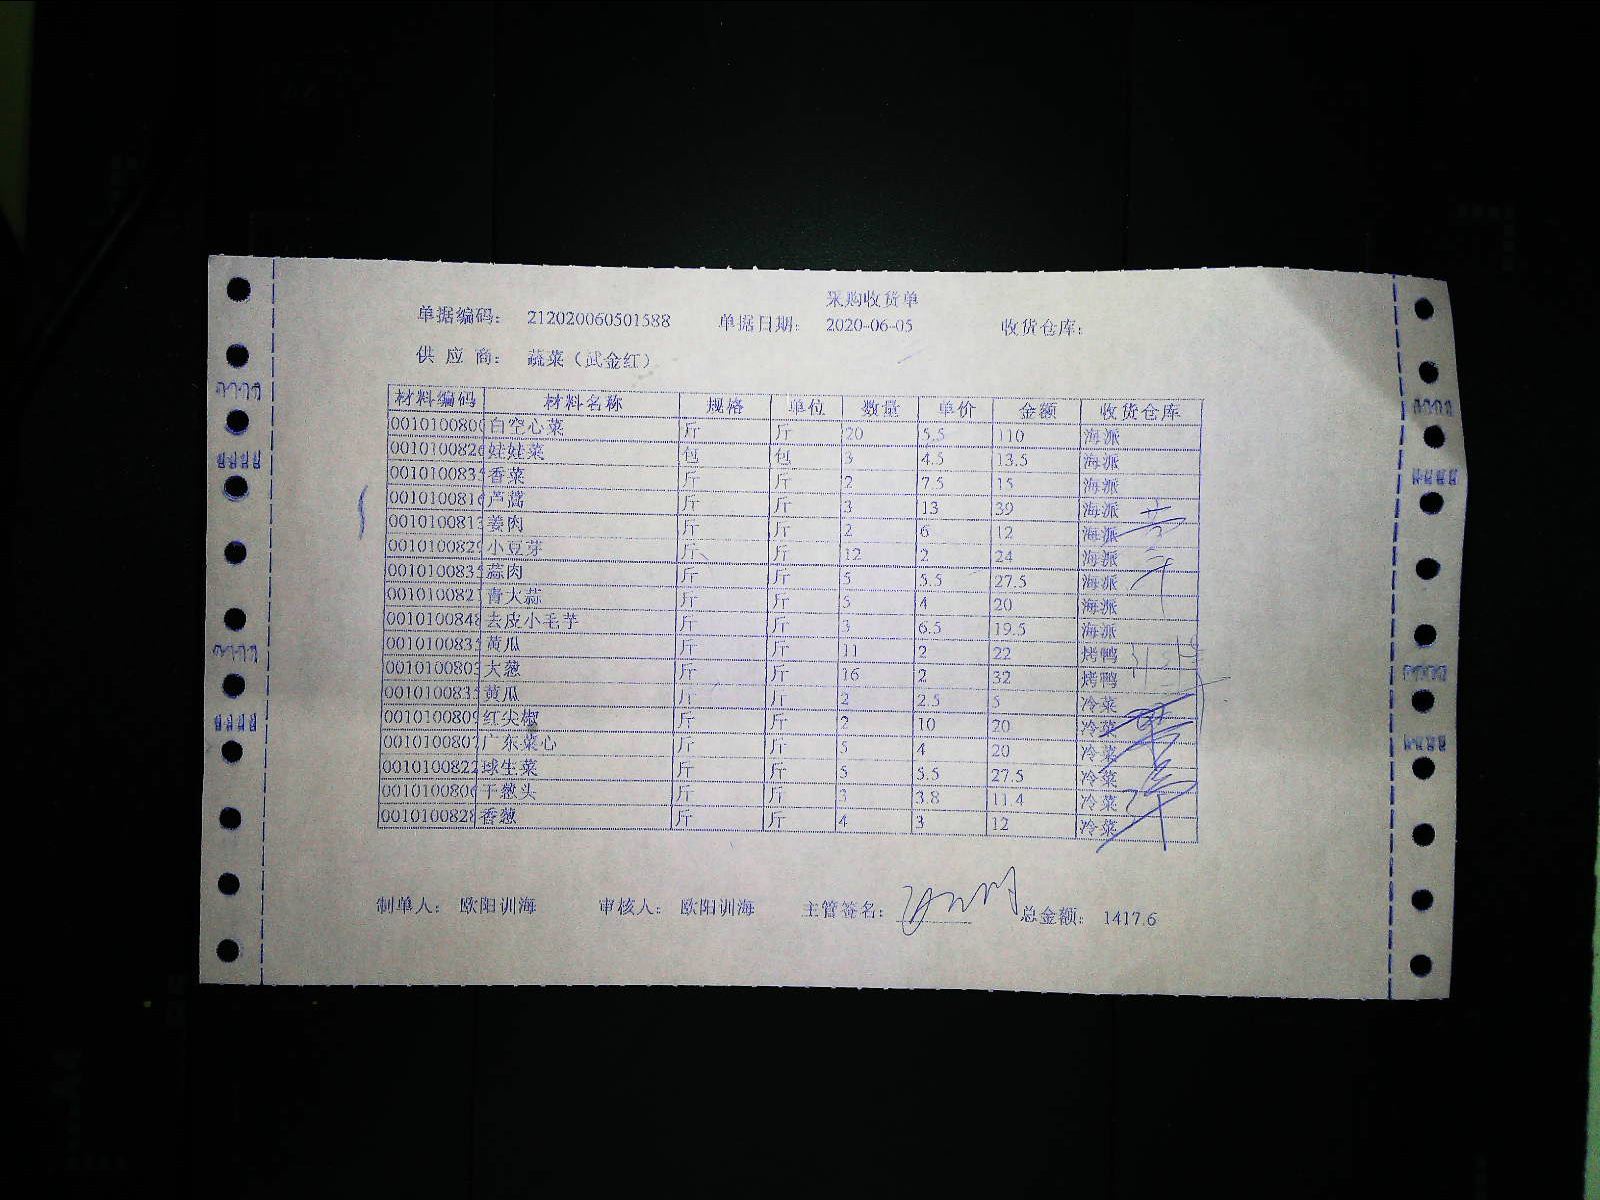 采购收货单
单据编码： 212020060501588 单据日期： 2020-06-05 收货仓库：
供 应 商： 蔬菜（武金红）
材料编码 材料名称 规格 单位 数量 单价 金额 收货仓库
0010100800 白空心菜 斤 斤 20 5.5 110 海派
001010082 娃娃菜 包 包 3 4.5 13.5 海派
001010083 香菜 斤 斤 2 7.5 15 海派
001010081 芦蒿 斤 斤 3 13 39 海派
001010081 姜肉 斤 斤 2 6 12 海派
001010082 小豆芽 斤 斤 12 2 24 海派
001010083 蒜肉 斤 斤 5 5.5 27.5 海派
001010082 青大蒜 斤 斤 5 4 20 海派
001010084 去皮小毛芋 斤 斤 3 6.5 19.5 海派
001010083 黄瓜 斤 斤 11 2 22 烤鸭
001010080 大葱 斤 斤 16 2 32 烤鸭
001010083 黄瓜 斤 斤 2 2.5 5 冷菜
001010080 红尖椒 斤 斤 2 10 20 冷菜
001010080 广东菜心 斤 斤 5 4 20 冷菜
001010082 球生菜 斤 斤 5 5.5 27.5 冷菜
001010080 干葱头 斤 斤 3 3.8 11.4 冷菜
001010082 香葱 斤 斤 4 3 12 冷菜
制单人： 欧阳训海 审核人： 欧阳训海 主管签名： 总金额： 1417.6